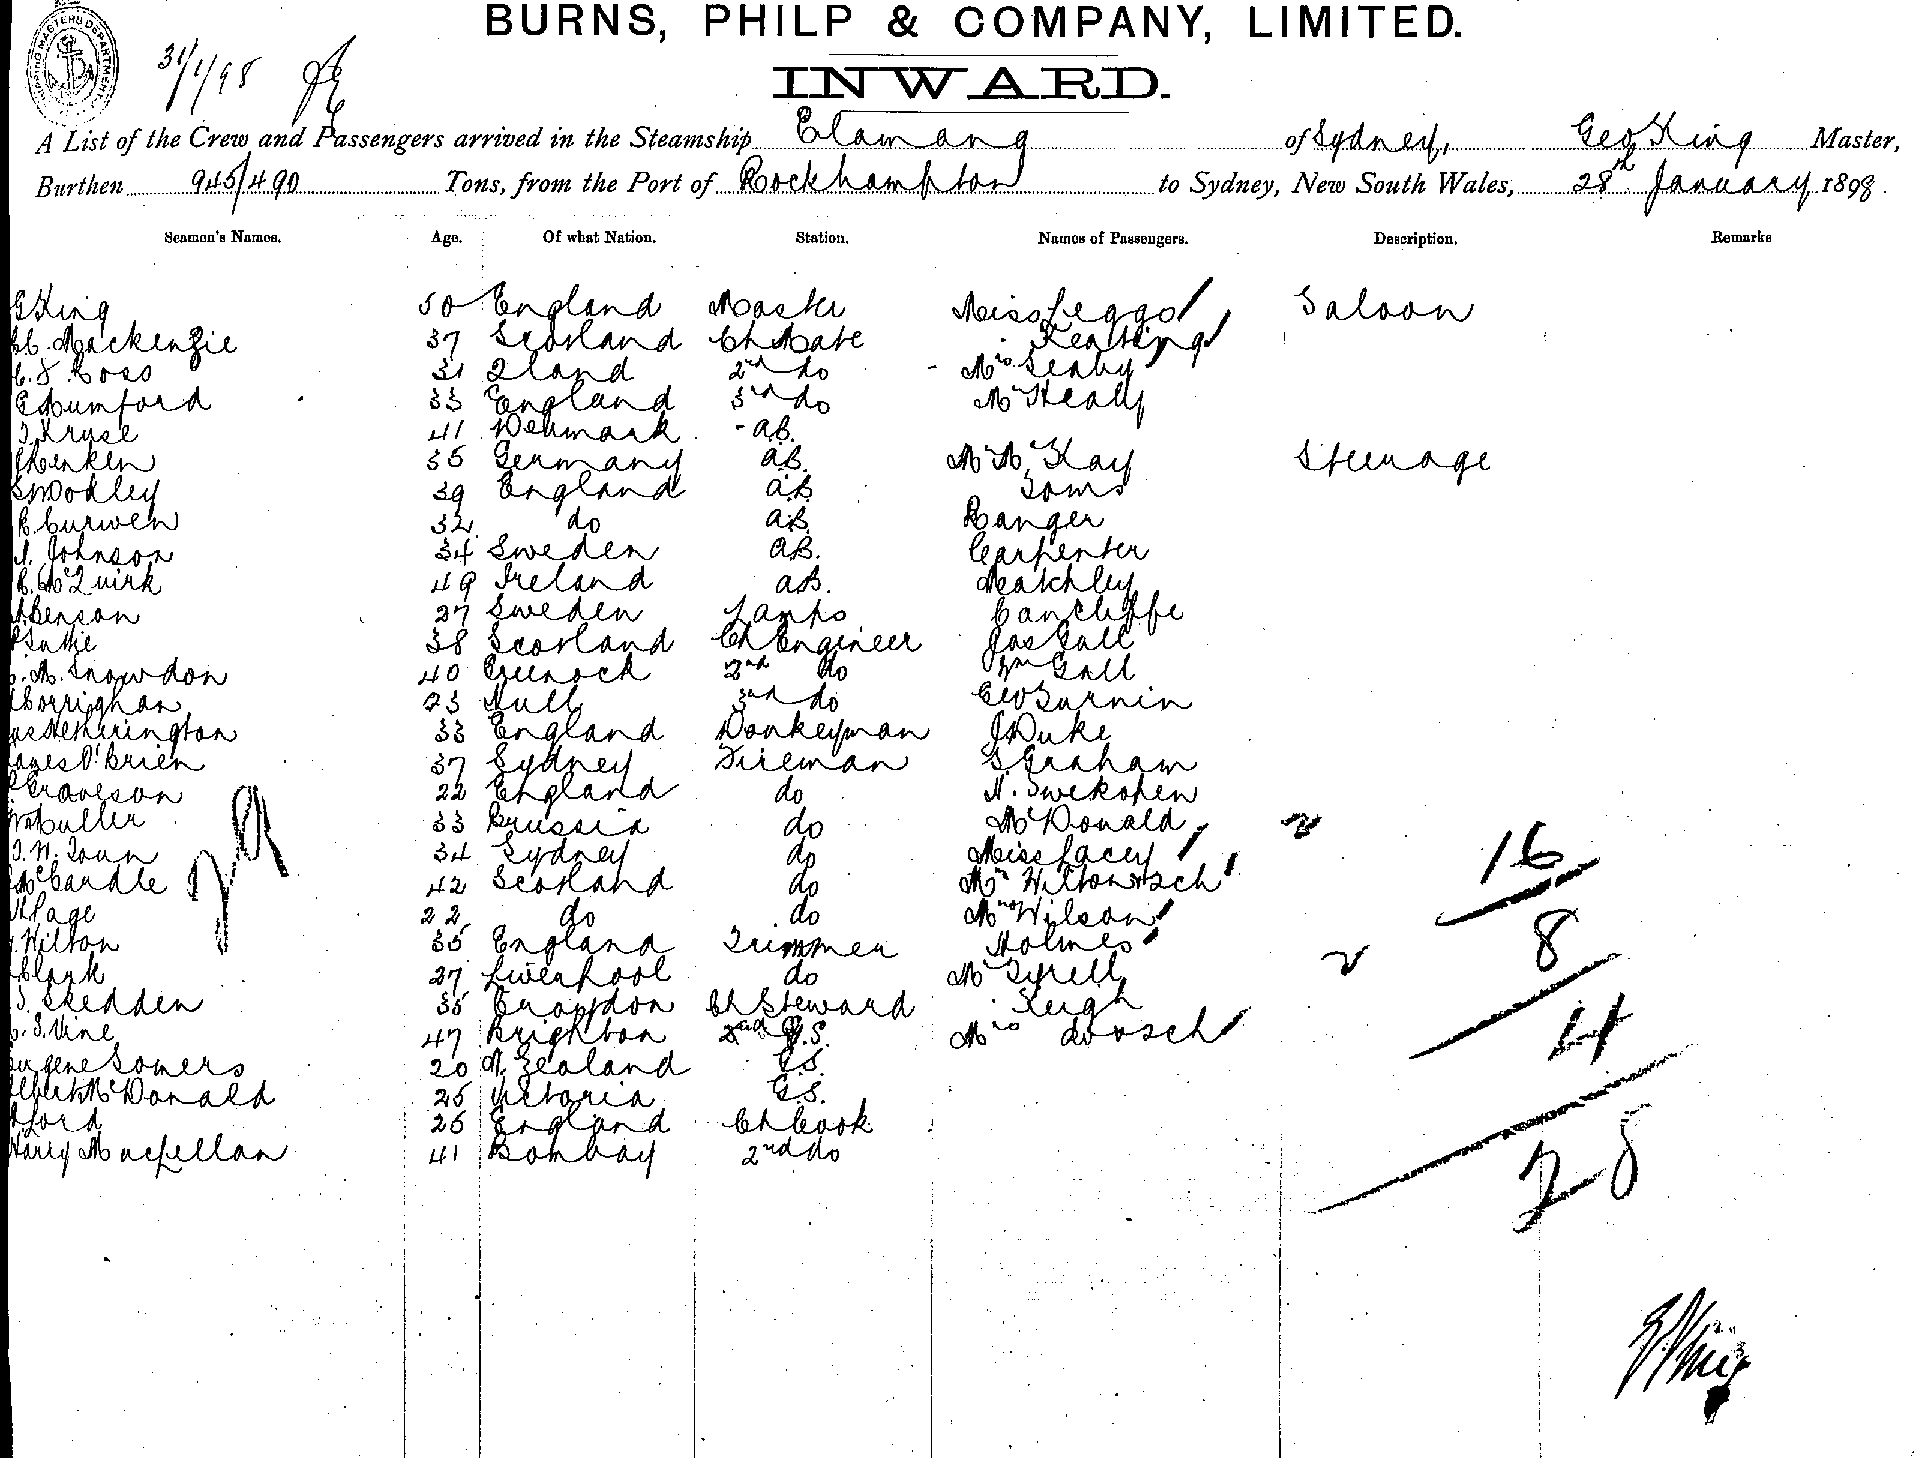 BURNS, PHILP & COMPANY, LIMITED.
31/1/98
INWARD.
A List of the Crew and Passengers arrived in the Steamship Elamang of Sydney, Geo King Master,
Burthen 945/490 Tons, from the Port of Rockhampton to Sydney, New South Wales, 28th January 1898.
Seamen's Names. Age. Of what Nation. Station. Names of Passengers. Description. Remarks
G King 50 England Master Miss Leggo Saloon
Mackenzie 37 Scotland Ch Mate Keating
Ross 31 Zland 2nd do Mrs Seaby
Mumford 33 England 3rd do Mr Healy
Kruse 41 Denmark A.B.
Menken 35 Germany A.B. Mr McKay Steerage
Woolley 39 England A.B. Toms
Curwen 32 do A.B. Ranger
Johnson 34 Sweden A.B. Carpenter
McQuirk 49 Ireland A.B. Neatchley
Benson 27 Sweden Lamps Cancliffe
38 Scotland Ch Engineer Jas Gall
Snowdon 40 Greenock 2nd do Wm Gall
Corrighan 23 Hull 3rd do Geo Turnin
Hetherington 33 England Donkeyman J Duke
James O'Brien 37 Sydney Fireman G. Graham
Graveson 22 England do
Muller 33 Prussia do McDonald
34 Sydney do Miss Lacey
McCardle 42 Scotland do Mr
Page 22 do do Mrs Wilson
Hilton 35 England Trimmer Holmes
Clark 27 Liverpool do Mr Tyrell
Skedden 35 Croydon Ch Steward Leigh
S. Vine 47 Brighton 2nd G.S. Mrs
Eugene Somers 20 N. Zealand G.S.
Albert McDonald 25 Victoria G.S.
Ford 25 England Ch Cook
Harry Maclellan 41 Bombay 2nd do
16
8
4
28
G King